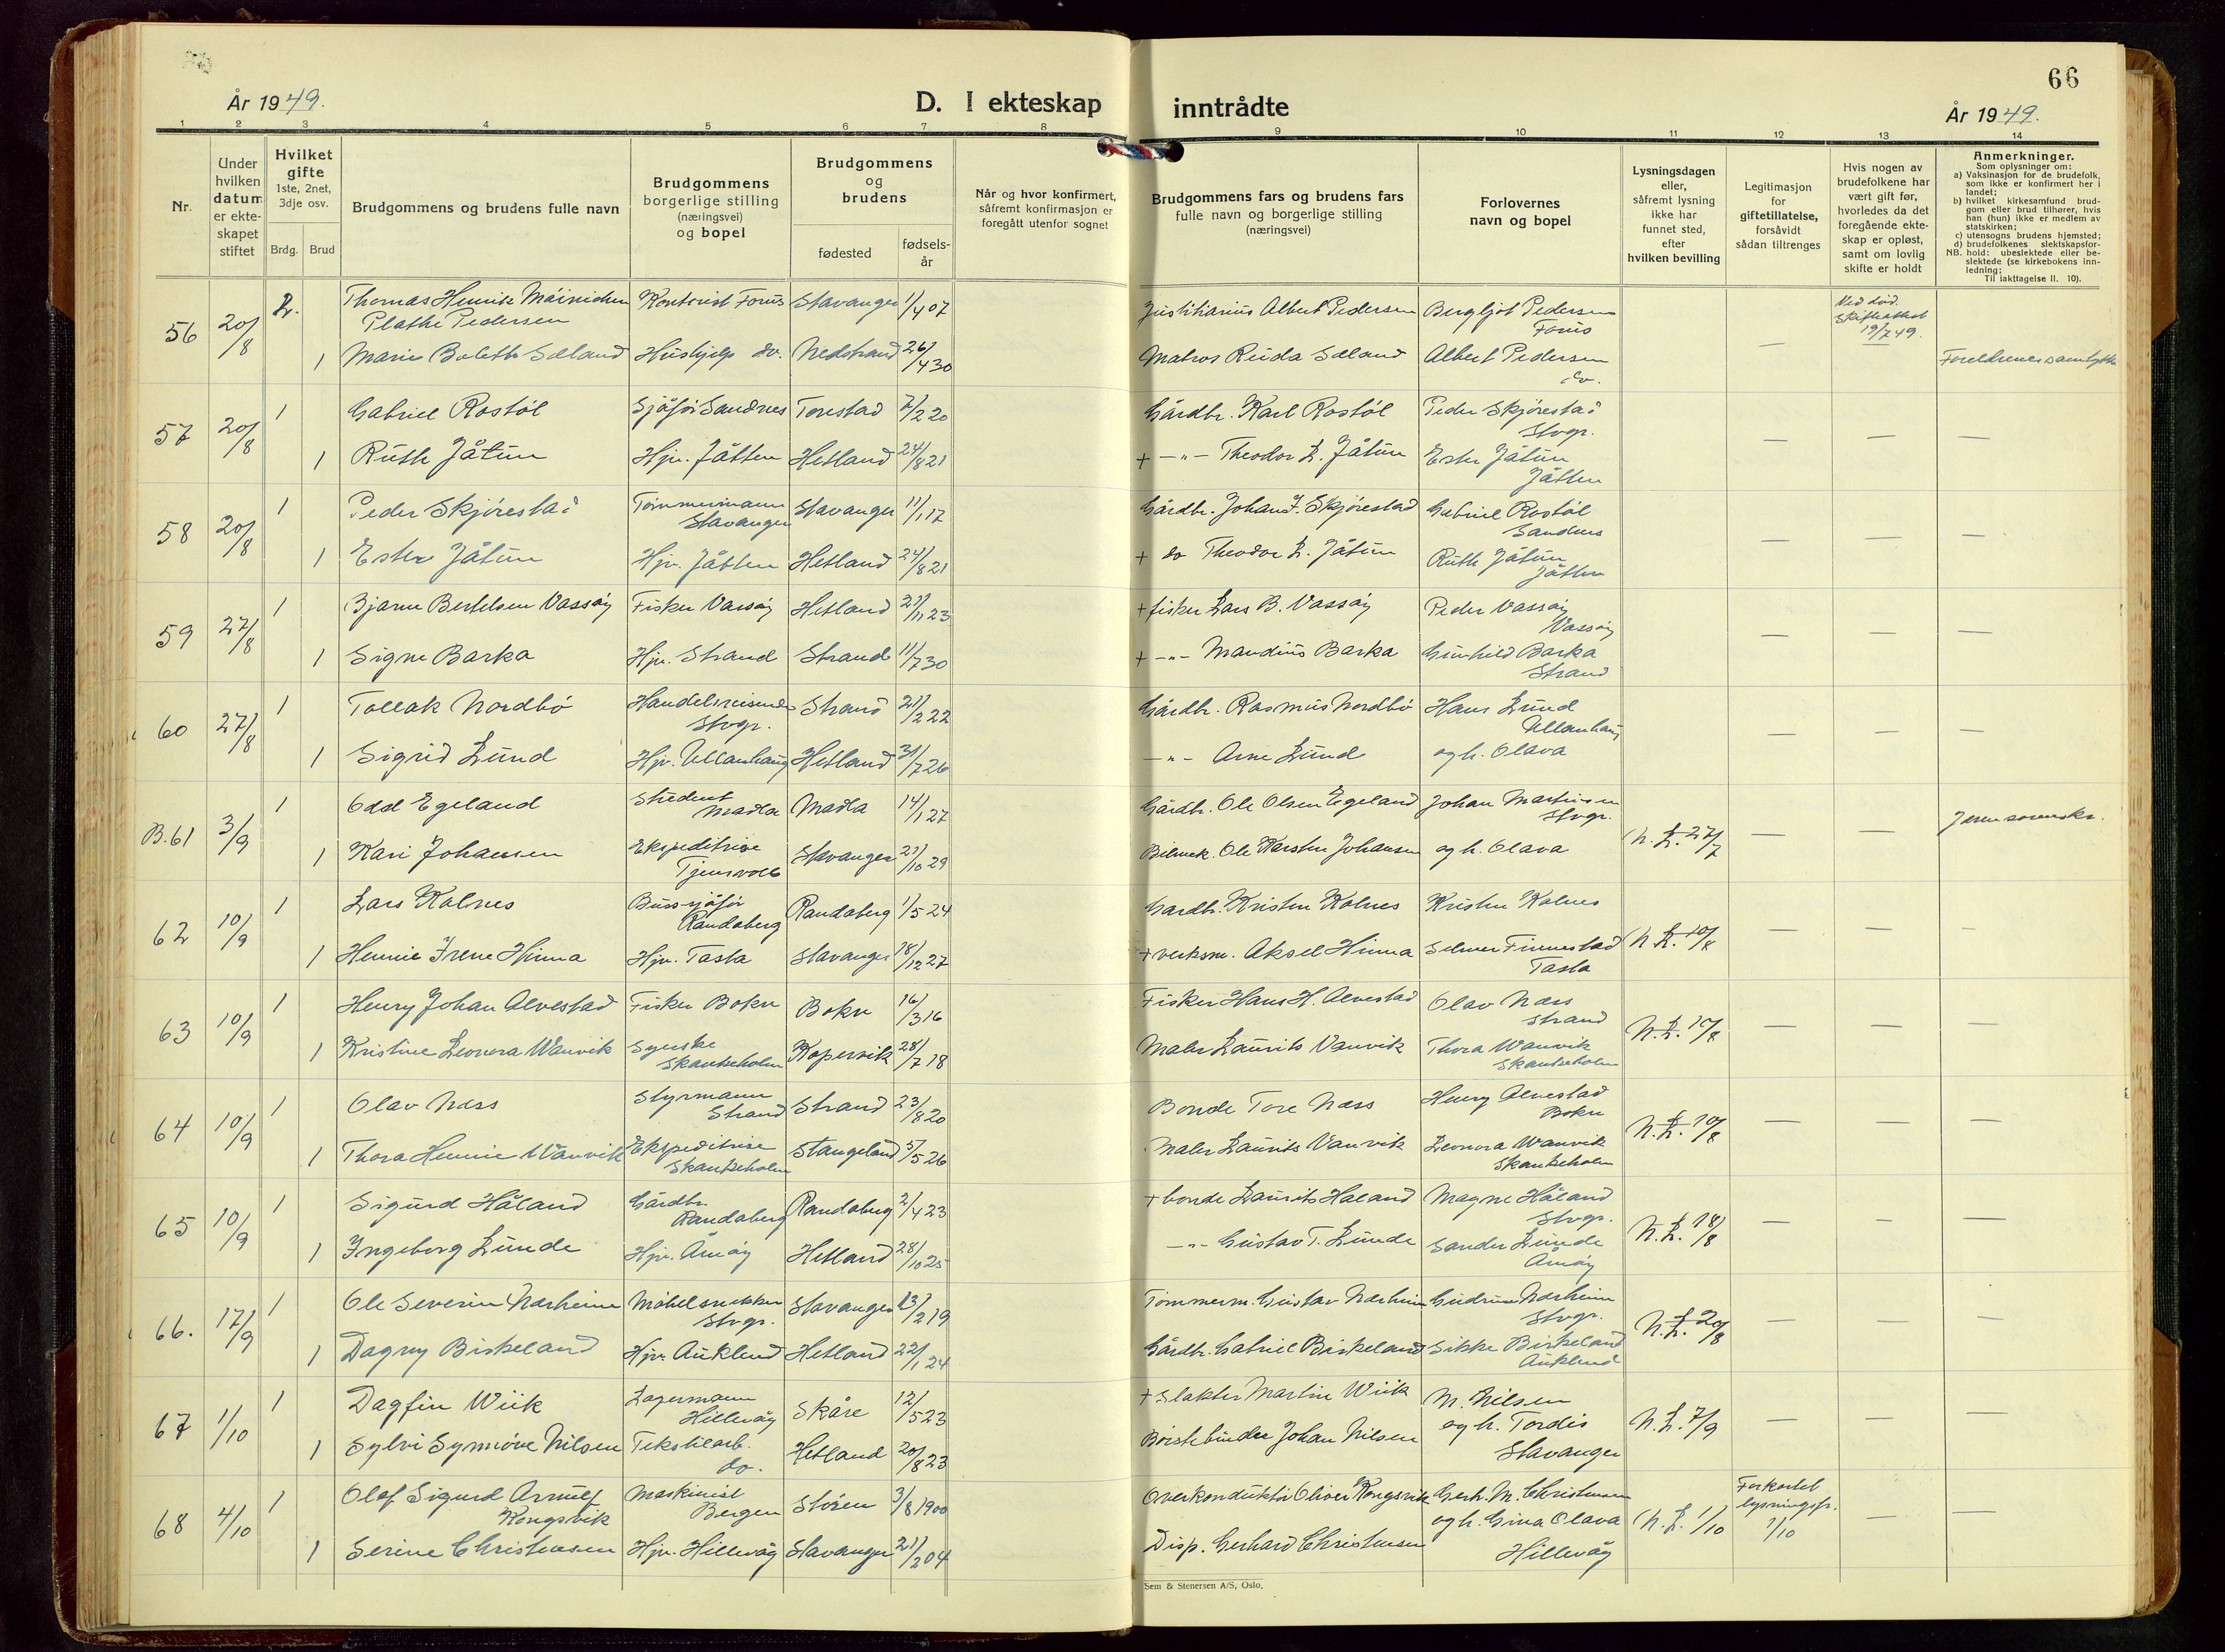 66
År 1949.
D. I ekteskap inntrådte
År 1949.
1 2 3 4 5 6 7 8 9 10 11 12 13 14
Nr.
Under hvilken datum er ekteskapet stiftet
Hvilket gifte 1ste, 2net, 3dje osv.
Brdg. Brud
Brudgommens og brudens fulle navn
Brudgommens borgerlige stilling (næringsvei) og bopel
Brudgommens og brudens
fødested
fødsels-år
Når og hvor konfirmert, såfremt konfirmasjon er foregått utenfor sognet
Brudgommens fars og brudens fars fulle navn og borgerlige stilling (næringsvei)
Forlovernes navn og bopel
Lysningsdagen eller, såfremt lysning ikke har funnet sted, efter hvilken bevilling
Legitimasjon for giftetillatelse, forsåvidt sådan tiltrenges
Hvis nogen av brudefolkene har vært gift før, hvorledes da det foregående ekteskap er opløst, samt om lovlig skifte er holdt
Anmerkninger.
Som oplysninger om:
a) Vaksinasjon for de brudefolk, som ikke er konfirmert her i landet;
b) hvilket kirkesamfund brudgom eller brud tilhører, hvis han (hun) ikke er medlem av statskirken;
c) utensogns brudens hjemsted;
d) brudefolkenes slektskapsforhold: ubeslektede eller beslektede (se kirkebokens innledning;
NB.
Til iakttagelse II. 10).
56 20/8 2. Thomas Henrik Mőinichen Plathe Pedersen Kontorist Forus Stavanger 1/4 07 Justitiarius Albert Pedersen Bergljot Pedersen Forus — Ved død. Skifteattest 19/7 49.
1 Marie Bolette Sæland Hushjelp do. Nedstrand 26/4 30 Matros Reida Sæland Albert Pedersen do. Foreldrenes samtykke
57 20/8 1 Gabriel Rostøl Sjåfør Sandnes Torestad 7/2 20 Gårdbr. Karl Rostøl Peder Skjørestad Stvgr. — — —
1 Ruth Jåtun Hjv. Jåtten Hetland 24/8 21 + —"— Theodor L. Jåtun Ester Jåtun Jåtten
58 20/8 1 Peder Skjørestad Tømmermann Stavanger Stavanger 11/1 17 Gårdbr. Johan J. Skjørestad Gabriel Rostøl Sandnes — — —
1 Ester Jåtun Hjv. Jåtten Hetland 24/8 21 + do Theodor L. Jåtun Ruth Jåtun Jåtten
59 27/8 1 Bjarne Bertelsen Vassøy Fisker Vassøy Hetland 27/11 23 + fisker Lars B. Vassøy Peder Vassøy Vassøy — — —
1 Signe Barka Hjv. Strand Strand 11/7 30 + —"— Mandius Barka Gunhild Barka Strand
60 27/8 1 Tollak Nordbø Handelsreisende Stvgr. Strand 21/2 22 Gårdbr. Rasmus Nordbø Hans Lund Ullanhaug — — —
1 Sigrid Lund Hjv. Ullanhaug Hetland 31/7 26 —"— Arne Lund og h. Olava
B.61 3/9 1 Odd Egeland Student Madla Madla 14/1 27 Gårdbr. Ole Olsen Egeland Johan Martinsen Stvgr. N.L. 27/7 — —
1 Kari Johansen Ekspeditrise Tjensvoll Stavanger 21/10 29 Bilmek. Ole Karsten Johansen og h. Olava
62 10/9 1 Lars Kalnes Bussjåfør Randaberg Randaberg 1/5 24 Gardbr. Kristen Kalnes Kristen Kalnes N.L. 10/8 — — —
1 Hennie Irene Hinna Hjv. Tasta Stavanger 18/12 27 + verksm. Aksel Hinna Selmer Finnestad Tasta
63 10/9 1 Henry Johan Alvestad Fisker Bokn Bokn 16/3 16 Fisker Hans H. Alvestad Olav Næss Strand N.L. 10/8 — — —
1 Kristine Leonora Wanvik Syerske Skankeholm Kopervik 28/7 18 Maler Laurits Vanvik Thora Wanvik Skankeholm
64 10/9 1 Olav Næss Styrmann Strand Strand 23/8 20 Bonde Tore Næss Henry Alvestad Bokn N.L. 10/8 — — —
1 Thora Hennie Wanvik Ekspeditrise Skankeholm Stangeland 5/5 26 Maler Laurits Vanvik Leonora Wanvik Skankeholm
65 10/9 1 Sigurd Håland Gårdbr. Randaberg Randaberg 2/4 23 + bonde Laurits Haland Magne Håland Stvgr. N.L. 18/8 — — —
1 Ingeborg Lunde Hjv. Åmøy Hetland 28/10 25 —"— Gustav T. Lunde Sander Lunde Åmøy
66. 17/9 1 Ole Severin Narheim Møbelsnekker Stvgr. Stavanger 13/2 19 Tømmerm. Gustav Narheim Gudrun Narheim Stvgr. N.L. 20/8 — — —
1 Dagny Birkeland Hjv. Auklend Hetland 22/1 24 Gårdbr. Gabriel Birkeland Sikke Birkeland Auklend
67 1/10 1 Dagfin Wiik Lagermann Hillevåg Skåre 12/5 23 + Slakter Martin Wiik M. Nilsen og h. Tordis Stavanger N.L. 7/9 — — —
1 Sylvi Synnøve Nilsen Tekstilarb. do. Hetland 20/8 23 Børstebinder Johan Nilsen
68 4/10 1 Olaf Sigurd Arnulf Kongsvik Maskinist Bergen Støren 3/8 1900 Overkonduktør Oliver Kongsvik Gerh. M. Christensen og h. Gina Olava Hillevåg N.L. 1/10 Forkortet lysningsfr. 1/10 — —
1 Serine Christensen Hjv. Hillevåg Stavanger 21/2 04 Disp. Gerhard Christensen
Sem & Stenersen A/S, Oslo.